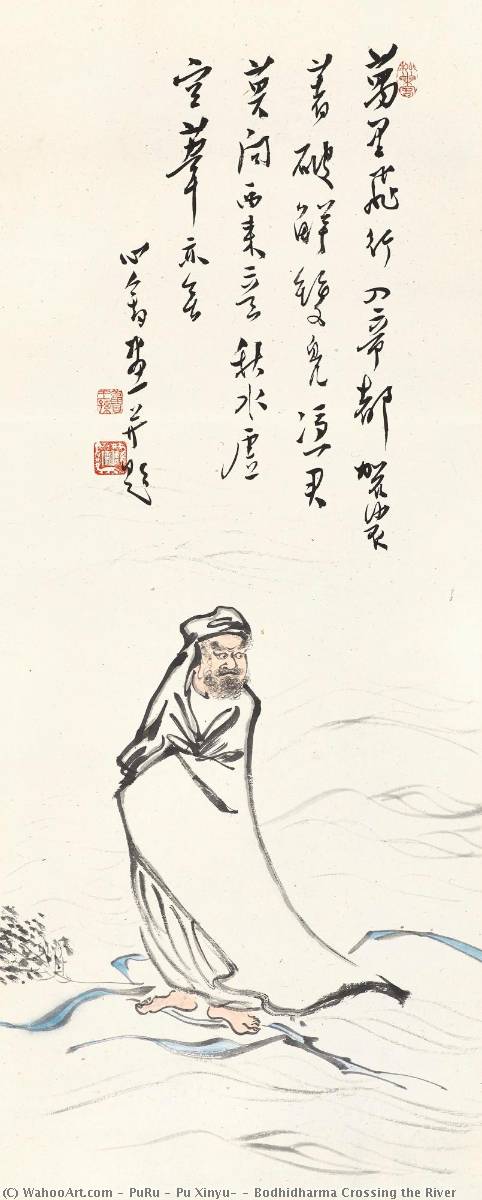 萬里飛行入帝都袈裟
著破解雙鳧憑君
莫問西來意秋水虛
空葦亦無
心畬畫并題
舊王孫
(C) WahooArt.com - PuRu - Pu Xinyu- - Bodhidharma Crossing the River